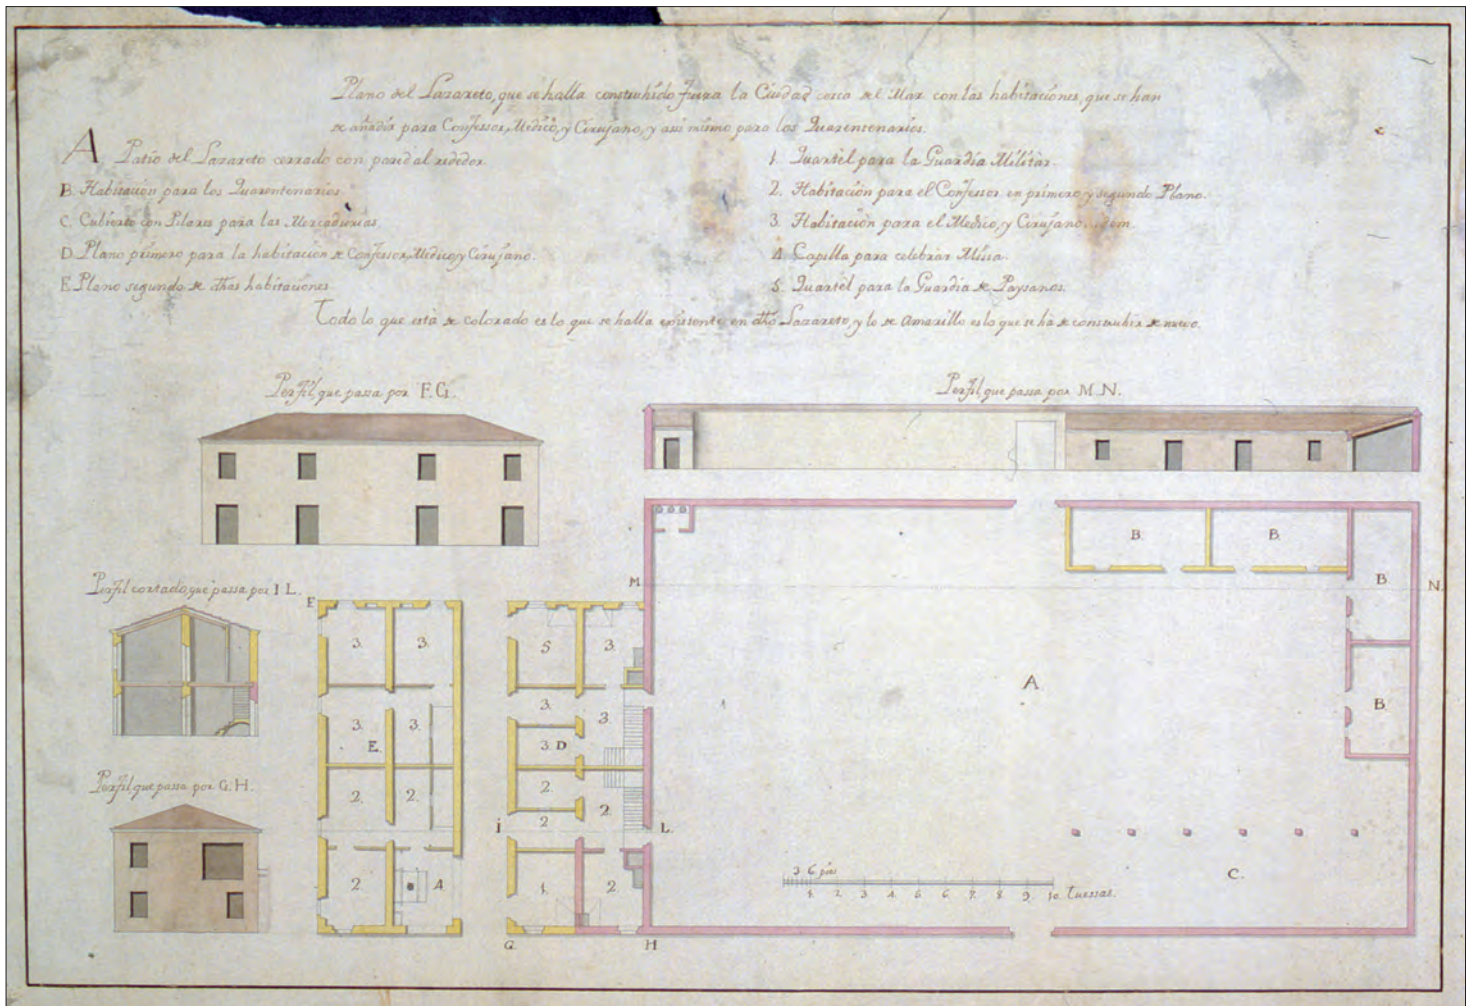 Plano del Lazareto, que se halla construhido fuera la Ciudad cerca del Mar con las habitaciones, que se han
de añadir para Confessor, Medico, y Cirujano, y assi mismo para los Quarentenarios.
A Patio del Lazareto cerrado con pared al rededor.
B. Habitación para los Quarentenarios.
C. Cubierto con Pilares para las Mercadurias.
D. Plano primero para la habitación de Confessor, Medico, y Cirujano.
E. Plano segundo de dhas habitaciones.
1. Quartel para la Guardia Militar.
2. Habitación para el Confessor en primero y segundo Plano.
3. Habitación para el Medico, y Cirujano
4. Capilla para celebrar Missa.
5. Quartel para la Guardia de Paysanos.
Todo lo que está de colorado es lo que se halla existente en dho Lazareto, y lo de Amarillo es lo que se ha de construhir de nuevo.
Perfil, que passa por F.G.
Perfil, que passa por M.N.
Perfil cortado, que passa por I L.
Perfil que passa por G.H.
F
3. 3.
3. 3.
E.
2. 2.
2. 4.
5 3.
3. 3.
3. D
2. 2.
2
1. 2.
I L.
G. H
M. N.
B. B. B.
B.
A
C.
3 6. pies
1 2 3 4 5 6 7. 8 9 10 Tuessas.